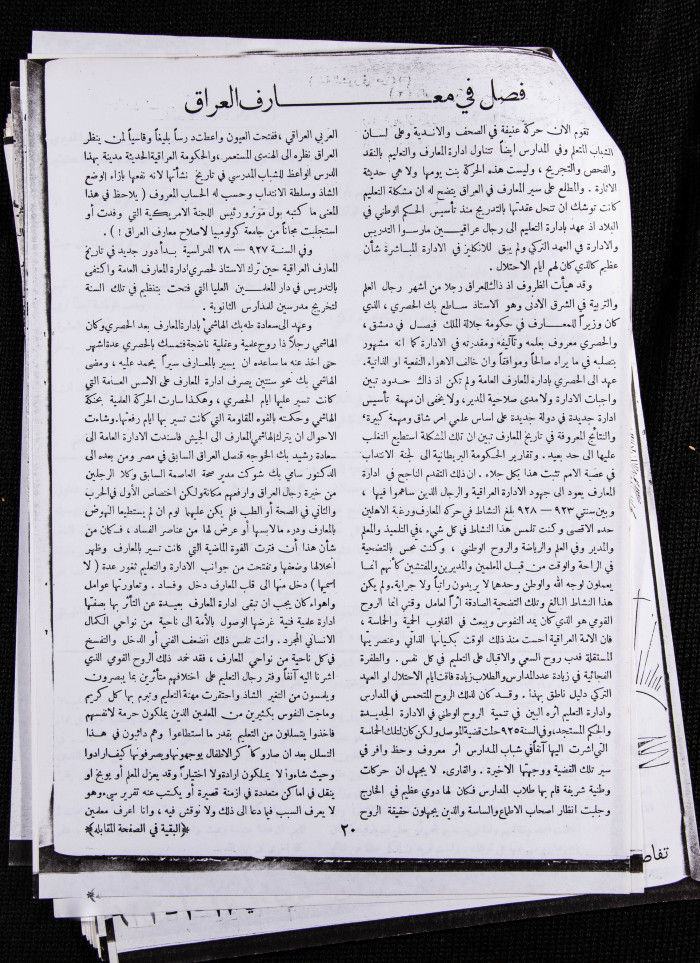 فصل في معارف العراق
تقوم الان حركة عنيفة في الصحف والاندية وعلى لسان
الشباب المتعلم وفي المدارس ايضاً تتناول ادارة المعارف والتعليم بالنقد
والفحص والتجريح ، وليست هذه الحركة بنت يومها ولا هي حديثة
الاثارة . والمطلع على سير المعارف في العراق يتضح له ان مشكلة التعليم
كانت توشك ان تنحل عقدتها بالتدريج منذ تأسيس الحكم الوطني في
البلاد اذ عهد بادارة التعليم الى رجال عراقيين مارسوا التدريس
والادارة في العهد التركي ولم يبق للانكليز في الادارة المباشرة شأن
عظيم كالذي كان لهم ايام الاحتلال .
وقد هيأت الظروف اذ ذاك للعراق رجلا من اشهر رجال العلم
والتربية في الشرق الادنى وهو الاستاذ ساطع بك الحصري ، الذي
كان وزيراً للمعارف في حكومة جلالة الملك فيصل في دمشق ،
والحصري معروف بعلمه وتآليفه ومقدرته في الادارة كما انه مشهور
بتصلبه في ما يراه صالحاً وموافقاً وان خالف الاهواء النفعية او الذاتية.
عهد الى الحصري بادارة المعارف العامة ولم تكن اذ ذاك حدود تبين
واجبات الادارة ولا مدى صلاحية المدير، ولا يخفى ان مهمة تأسيس
ادارة جديدة في دولة جديدة على اساس علمي امر شاق ومهمة كبيرة
والنتائج المعروفة في تاريخ المعارف تبين ان تلك المشكلة استطيع التغلب
عليها الى حد بعيد . وتقارير الحكومة البريطانية الى لجنة الانتداب
في عصبة الامم تثبت هذا بكل جلاء . ان ذلك التقدم الناجح في ادارة
المعارف يعود الى جهود الادارة العراقية والرجال الذين ساهموا فيها ،
وبين سنتي ٩٢٣ — ٩٢٨ بلغ النشاط في حركة المعارف ورغبة الاهلين
حده الاقصى وكنت تلمس هذا النشاط في كل شيء ، في التلميذ والمعلم
والمدير وفي العلم والرياضة والروح الوطني ، وكنت تحس بالتضحية
في الراحة والوقت من قبل المعلمين والمديرين والمفتشين كأنهم انما
يعملون لوجه الله والوطن وحدها لا يريدون راتباً ولا جراية. ولم يكن
هذا النشاط البالغ وتلك التضحية الصادقة اثراً لعامل وقتي انما الروح
القومي هو الذي كان يمد النفوس ويبعث في القلوب الحمية والحماسة ،
فان الامة العراقية احست منذ ذلك الوقت بكيانها الذاتي وعنصريتها
المستقلة فدب روح السعي والاقبال على التعليم في كل نفس . والطفرة
الفجائية في زيادة عدد المدارس والطلاب زيادة فاقت ايام الاحتلال او العهد
التركي دليل ناطق بهذا . وقد كان لذلك الروح المتحمس في المدارس
وادارة التعليم اثره البين في تنمية الروح الوطني في الادارة الجديدة
والحكم المستجد، وفي السنة ٩٢٥ حلت قضية الموصل ولكن كان لتلك الحماسة
التي اشرت اليها آنفاً في شباب المدارس اثر معروف وحظ وافر في
سير تلك القضية ووجهتها الاخيرة . والقارىء لا يجهل ان حركات
وطنية شريفة قام بها طلاب المدارس فكان لها دوي عظيم في الخارج
وجلبت انظار اصحاب الاطماع والساسة والذين يجهلون حقيقة الروح
العربي العراقي ، ففتحت العيون واعطت درساً بليغاً وقاسياً لمن ينظر
العراق نظره الى الهندي المستعمر، والحكومة العراقية الحديثة مدينة بهذا
الدرس الواعظ للشباب المدرسي في تاريخ نشأتها لانه نفعها بازاء الوضع
الشاذ وسلطة الانتداب وحسب له الحساب المعروف ( يلاحظ في هذا
المعنى ما كتبه بول مونرو رئيس اللجنة الامريكية التي وفدت أو
استجلبت مجاناً من جامعة كولومبيا لاصلاح معارف العراق ! ) .
وفي السنة ٩٢٧ — ٢٨ الدراسية بدأ دور جديد في تاريخ
المعارف العراقية حين ترك الاستاذ لحصري ادارة المعارف العامة واكتفى
بالتدريس في دار المعلمين العليا التي فتحت بتنظيم في تلك السنة
لتخريج مدرسين للمدارس الثانوية .
وعهد الى سعادة طه بك الهاشمي بادارة المعارف بعد الحصري وكان
الهاشمي رجلاً ذا روح علمية وعقلية ناضجة فتمسك بالحصري عدة اشهر
حتى اخذ عنه ما ساعده ان يسير بالمعارف سيراً يحمد عليه ، ومضى
الهاشمي بك نحو سنتين يصرف ادارة المعارف على الاسس العامة التي
كانت تسير عليها ايام الحصري ، وهكذا سارت الحركة العلمية بحنكة
الهاشمي وحكمته بالقوه المقاومة التي كانت تسير بها ايام رفعتها. وشاءت
الاحوال ان يترك الهاشمي المعارف الى الجيش فاسندت الادارة العامة الى
سعادة رشيد بك الخوجه قنصل العراق السابق في مصر ومن بعده الى
الدكتور سامي بك شوكت مدير صحة العاصمة السابق وكلا الرجلين
من خيرة رجال العراق وارفعهم مكانة ولكن اختصاص الأول في الحرب
والثاني في الصحة أو الطب فلم يكن عليهما لوم ان لم يستطيعا النهوض
بالمعارف ودرء ما لابسها أو عرض لها من عناصر الفساد ، فكان من
شأن هذا أن فترت القوة الماضية التي كانت تسير بالمعارف وظهر
انحلالها وضعفها وتفتحت من جوانب الادارة والتعليم ثغور عدة ( لا
اسميها ) دخل منها الى قلب المعارف دخل وفساد . وتعاورتها عوامل
واهواء كان يجب ان تبقى ادارة المعارف بعيدة عن التأثر بها بصفتها
ادارة علمية فنية غرضها الوصول بالأمة الى ناحية من نواحي الكمال
الانساني المجرد . وانت تلمس ذلك الضعف الفني أو الدخل والتفسخ
في كل ناحية من نواحي المعارف ، فقد خمد ذلك الروح القومي الذي
اشرنا اليه آنفاً وفتر رجال التعليم على اختلافهم متأثرين بما يبصرون
ويلمسون من التغير الشاذ واحتقرت مهنة التعليم وتبرم بها كل كريم
وماجت النفوس بكثيرين من المعلمين الذين يملكون حرمة لانفسهم
فاخذوا يتسللون من التعليم بقدر ما استطاعوا وهم دائبون في هذا
التسلل بعد ان صاروا كما كر الاطفال يوجهونها ويصرفونها كيف ارادوا
وحيث شاءوا لا يملكون ارادة ولا اختياراً وقد يعزل المعلم أو يوبخ او
ينقل في اماكن متعددة في ازمنة قصيرة أو يكتب عنه تقرير سيء وهو
لا يعرف السبب فيما دعا الى ذلك ولا نوقش فيه ، وانا اعرف معلمين
﴿البقية في الصفحة المقابلة﴾
٢٠
تفاص